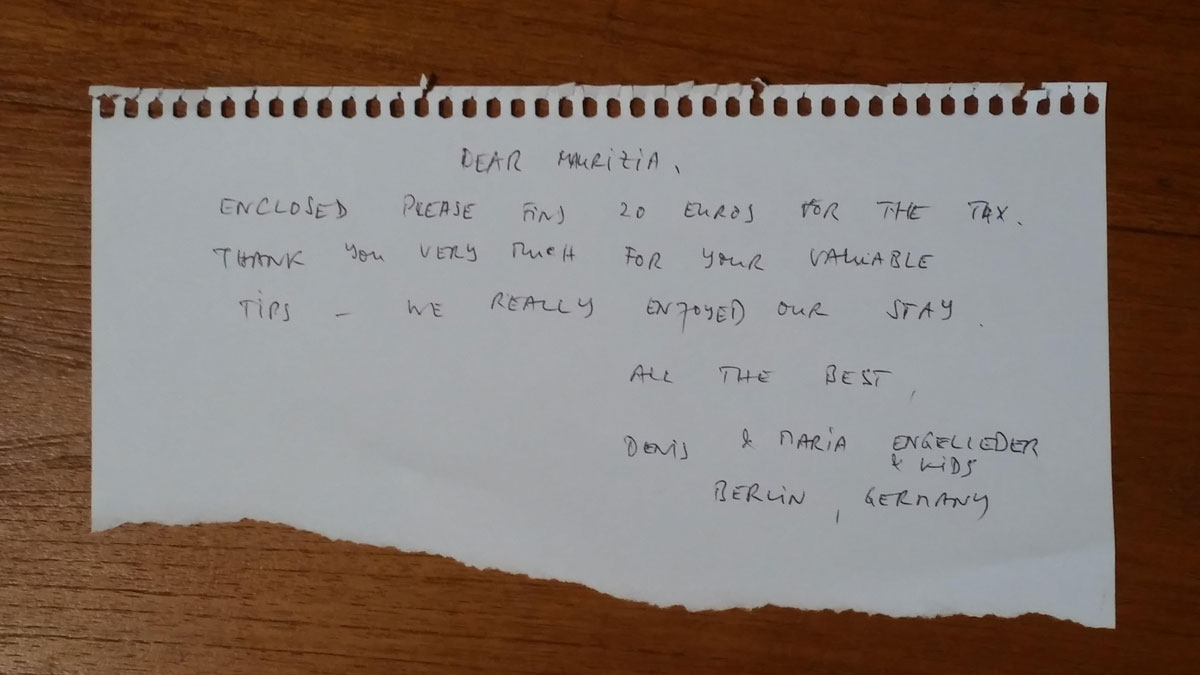 DEAR MAURIZIA,
ENCLOSED PLEASE FIND 20 EUROS FOR THE TAX.
THANK YOU VERY MUCH FOR YOUR VALUABLE
TIPS – WE REALLY ENJOYED OUR STAY.
ALL THE BEST,
DENIS & MARIA ENGELLEDER
& KIDS
BERLIN, GERMANY